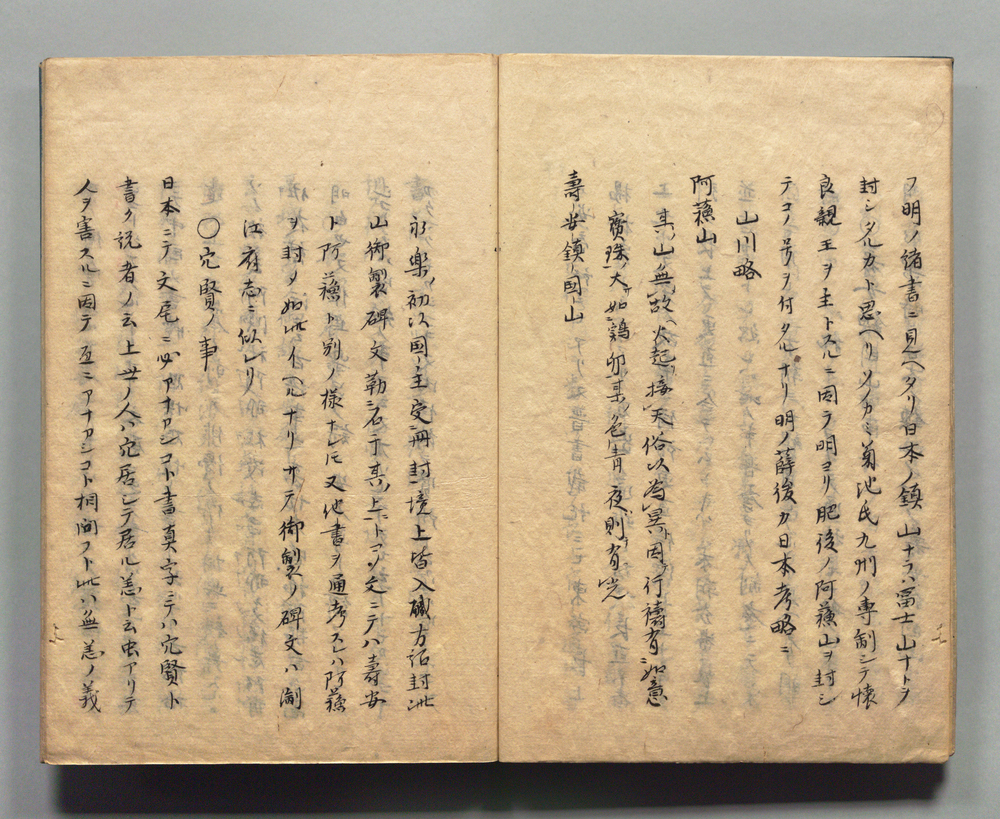 フ明ノ諸書ニ見ヘタリ日本ノ鎮山ナラハ冨士山ナトヲ
封シタルカト思ヘリソノカミ菊池氏九州ノ専制シテ懐
良親王ヲ主トスルニ因テ明ヨリ肥後ノ阿蘓山ヲ封シ
テコノ号ヲ付タルナリ明ノ薛俊カ日本考略ニ
山川略
阿蘓山
其山無故火起接天俗以為異因行禱有如意
寳珠大如鶏卵其色青夜則有光
壽安鎮国山
永樂ノ初以国主受冊封境上皆入職方詔封
山御製碑文勒石于其上トアリ文ニテハ壽安
ト阿蘓ト別ノ様ナレ𪜈又他書ヲ通考スレハ阿蘓
ヲ封メ如此イヘルナリサテ御製ノ碑文ハ
江府志ニ似レリ
〇穴賢ノ事
日本ニテ文尾ニ必アナカシコト書真字ニテハ穴賢ト
書ク説者ノ云上世ノ人ハ穴居シテ居ル恙ト云虫アリテ
人ヲ害スルニ因テ互ニアナカシコト相問フト此ハ無恙ノ義